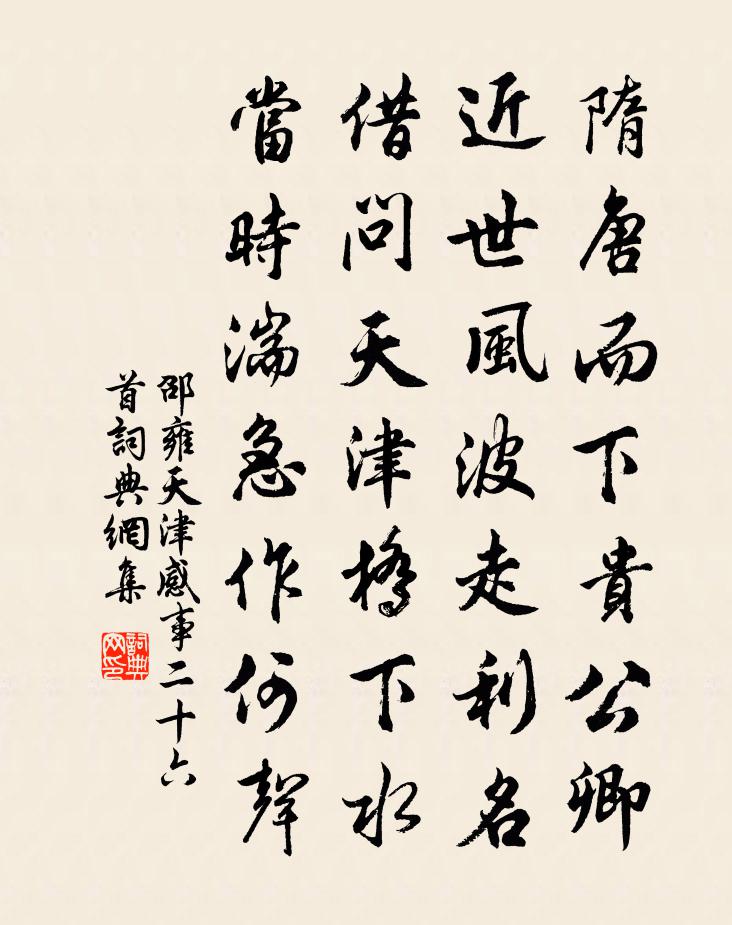 隋唐而下貴公卿
近世風波走利名
借問天津橋下水
當時湍急作何聲
邵雍天津感事二十六
首詞典網集
詞典网印